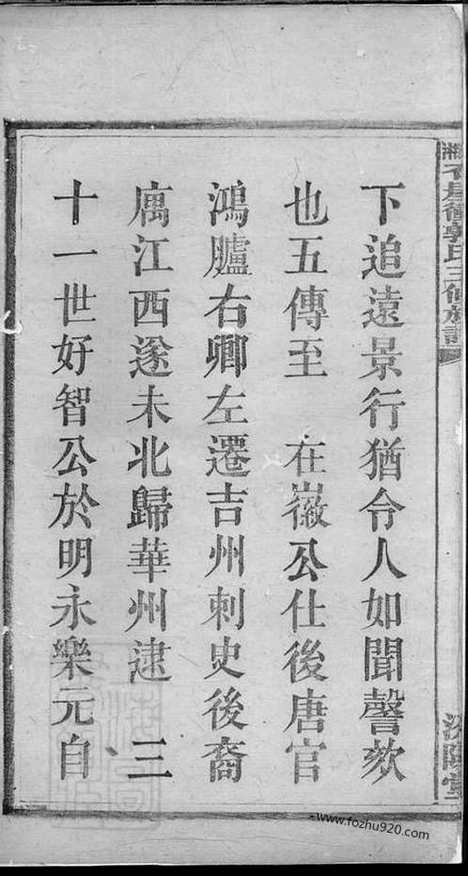 下追遠景行猶令人如聞謦欬
也五傳至 在徽公仕後唐官
鴻臚右卿左遷吉州刺史後裔
寓江西遂未北歸華州逮 三
十一世好智公於明永樂元自
氏三修族譜
www.fozhu920.com